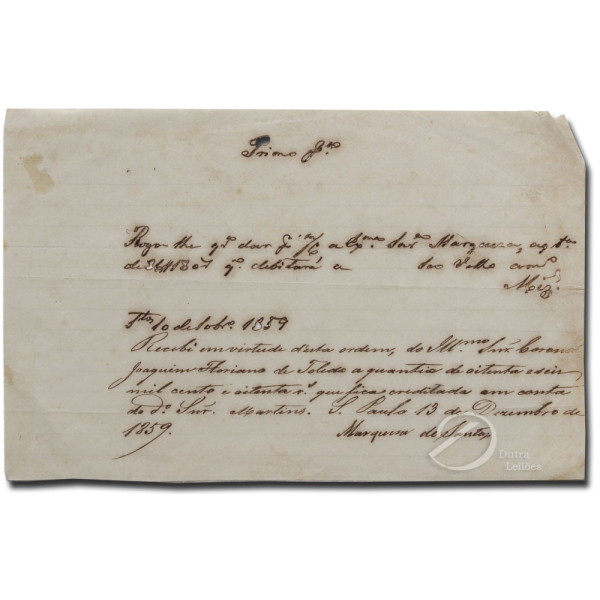 Primo
Rogo-lhe q^r dar p^r m/c a Ex^ma Snr^a Marqueza, a q^tia
de 86$180 r^s q^e debitará a seo Velho am^o
S^tos 10 de 10br^o 1859
Recebi em virtude desta ordem, do Ill^mo Snr Coronel
Joaquim Floriano de Toledo a quantia de oitenta e seis
mil cento e oitenta r^s que fica creditada em conta
do d^o Snr. Martins. S. Paulo 13 de Dezembro de
1859. Marqueza de Santos
Dutra
Leilões